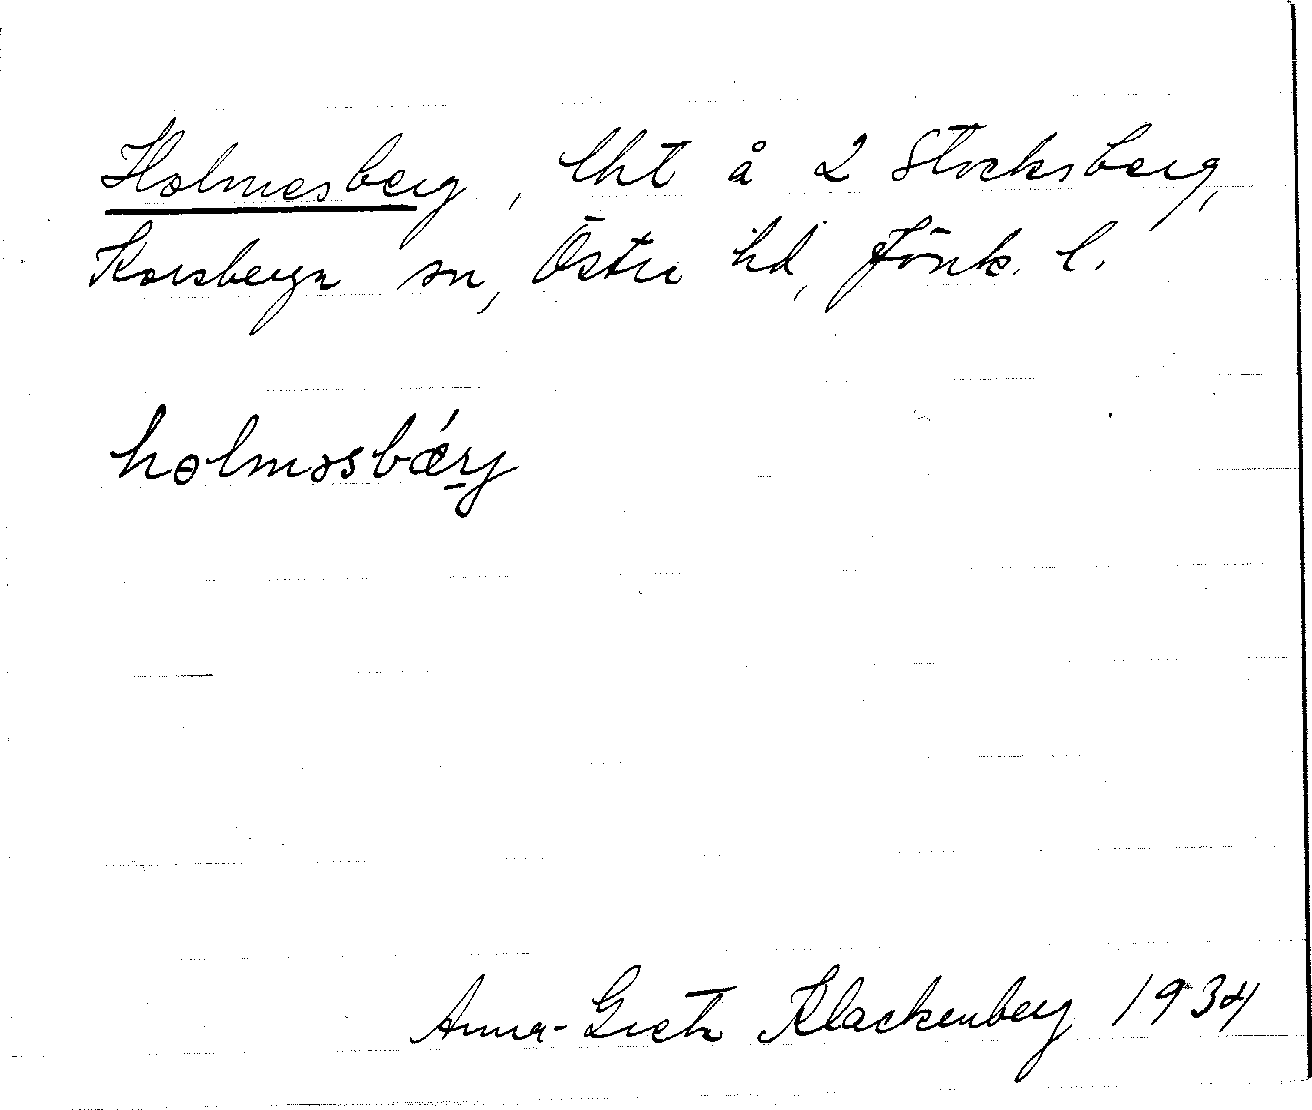 Holmesberg, lht å 2 Stocksberg,
Korsberga sn, Östra hd, Jönk. l.
holməsbǽrj
Anna-Greta Klackenberg 1934